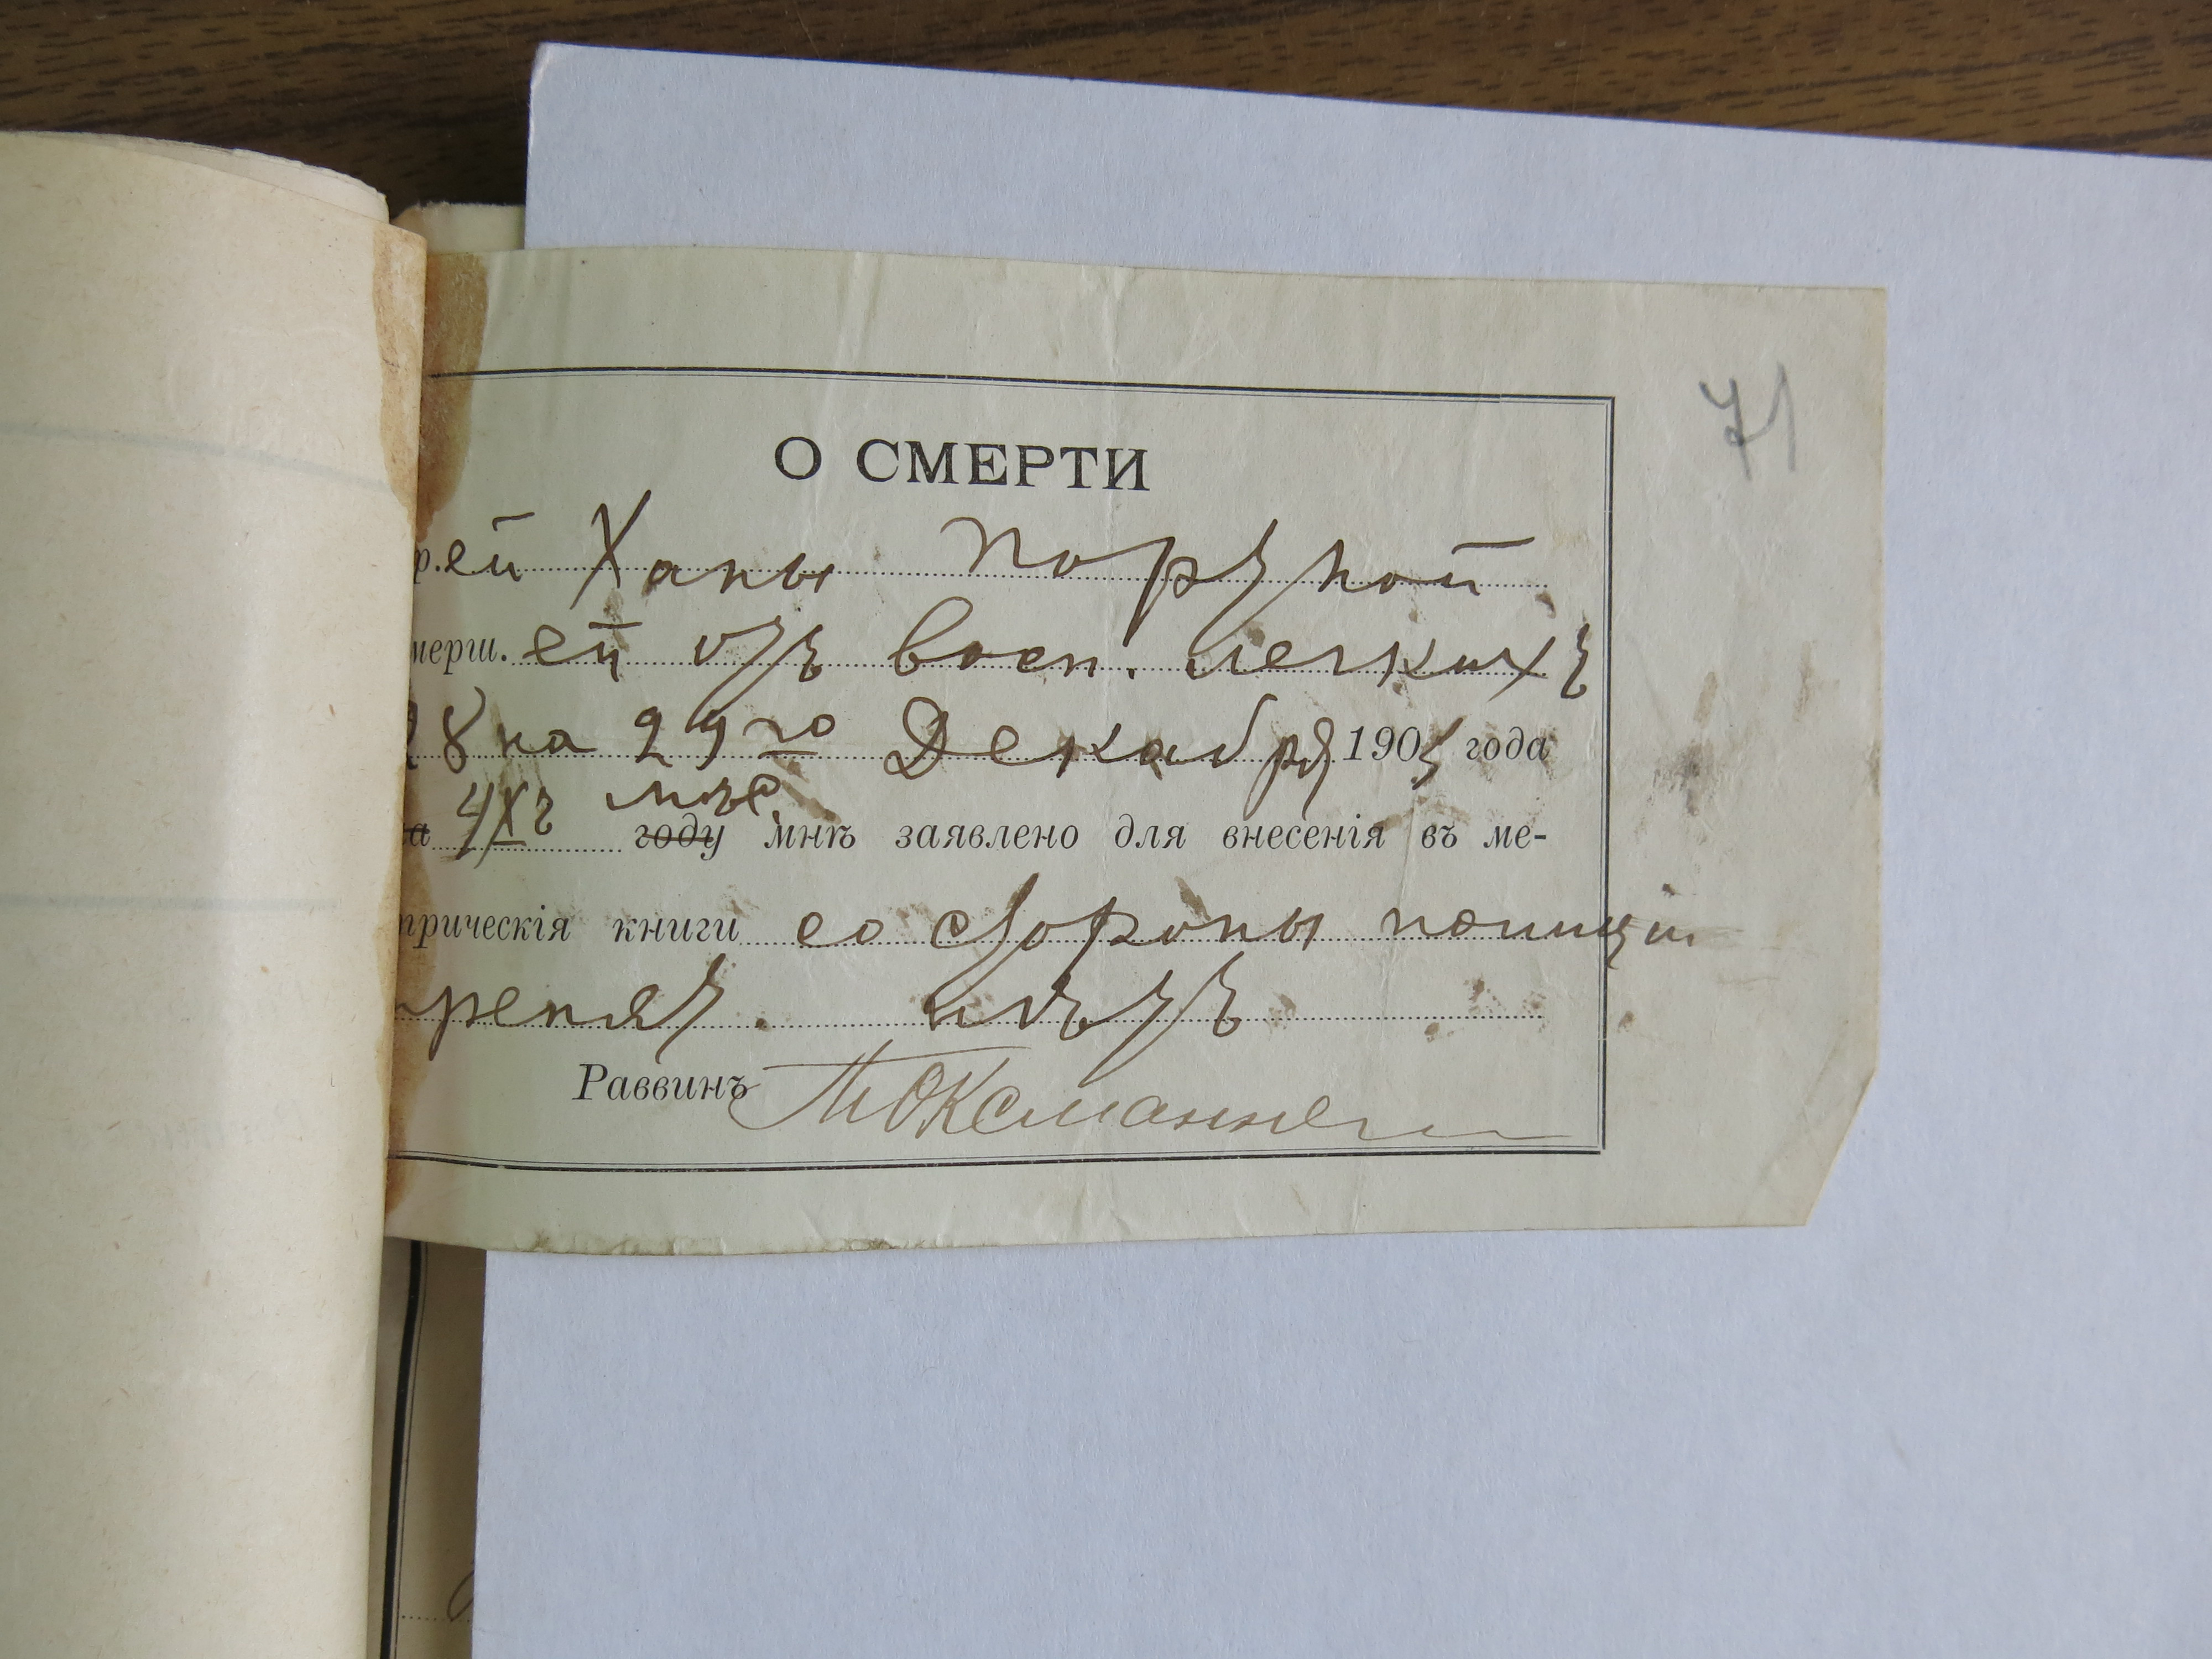 71
О СМЕРТИ
р.ей Ханы Порѣной
мерш.ей отъ восп. легкихъ
28 на 29го Декабря 1905 года
на 4хъ мѣс.
году мнѣ заявлено для внесенія въ ме-
трическія книги со стороны полиціи
препят. нѣтъ
Раввинъ